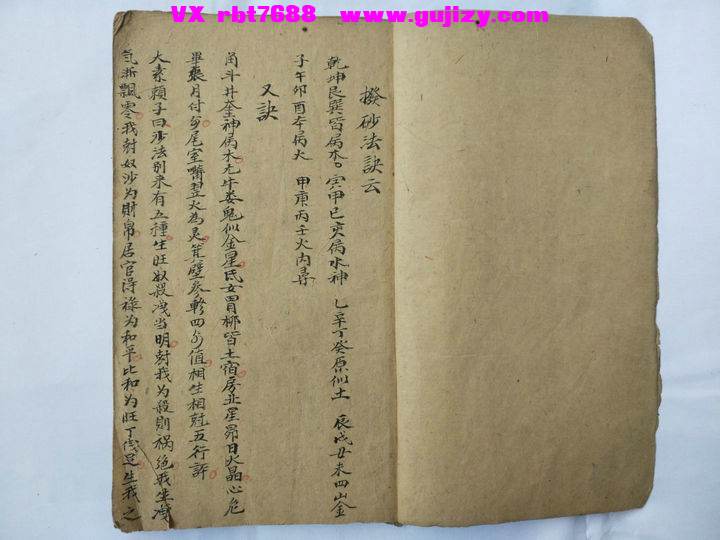 VX rbt7688 www.gujizy.com
撥砂法訣云
乾坤艮巽皆屬木。寅甲巳亥屬水神 乙辛丁癸原似土 辰戌丑未四山金
子午卯酉本屬火 甲庚丙壬火內尋
又訣
角斗井奎神屬木亢牛娄鬼似金星氐女胃柳皆土宿房虚星昴日火晶心危
畢張月付尾室嘴翌火為灵箕壁参軫四值相生相尅五行評
大素賴子曰沙法别来有五種生旺奴殺洩当明尅我為殺則禍绝我生洩
氣漸飄零我尅奴沙为財帛居官得禄为和平比和为旺丁財足生我之